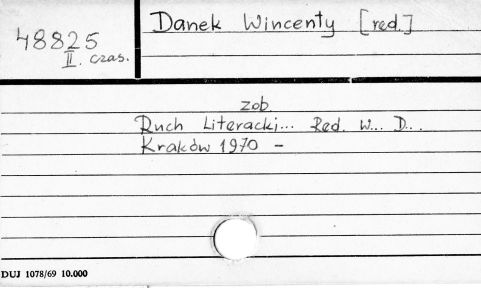 48825
II. czas.
Danek Wincenty [red.]
zob.
Ruch Literacki... Red. W... D...
Kraków 1970 -
DUJ 1078/69 10.000